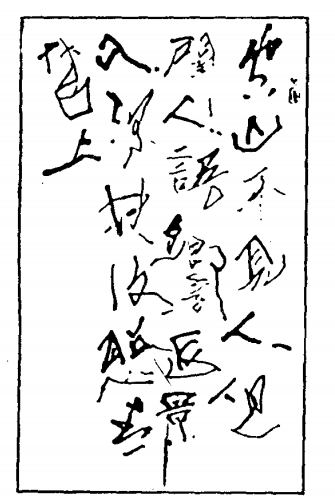 空山不見人但
聞人語響返景
入深林復照青
苔上